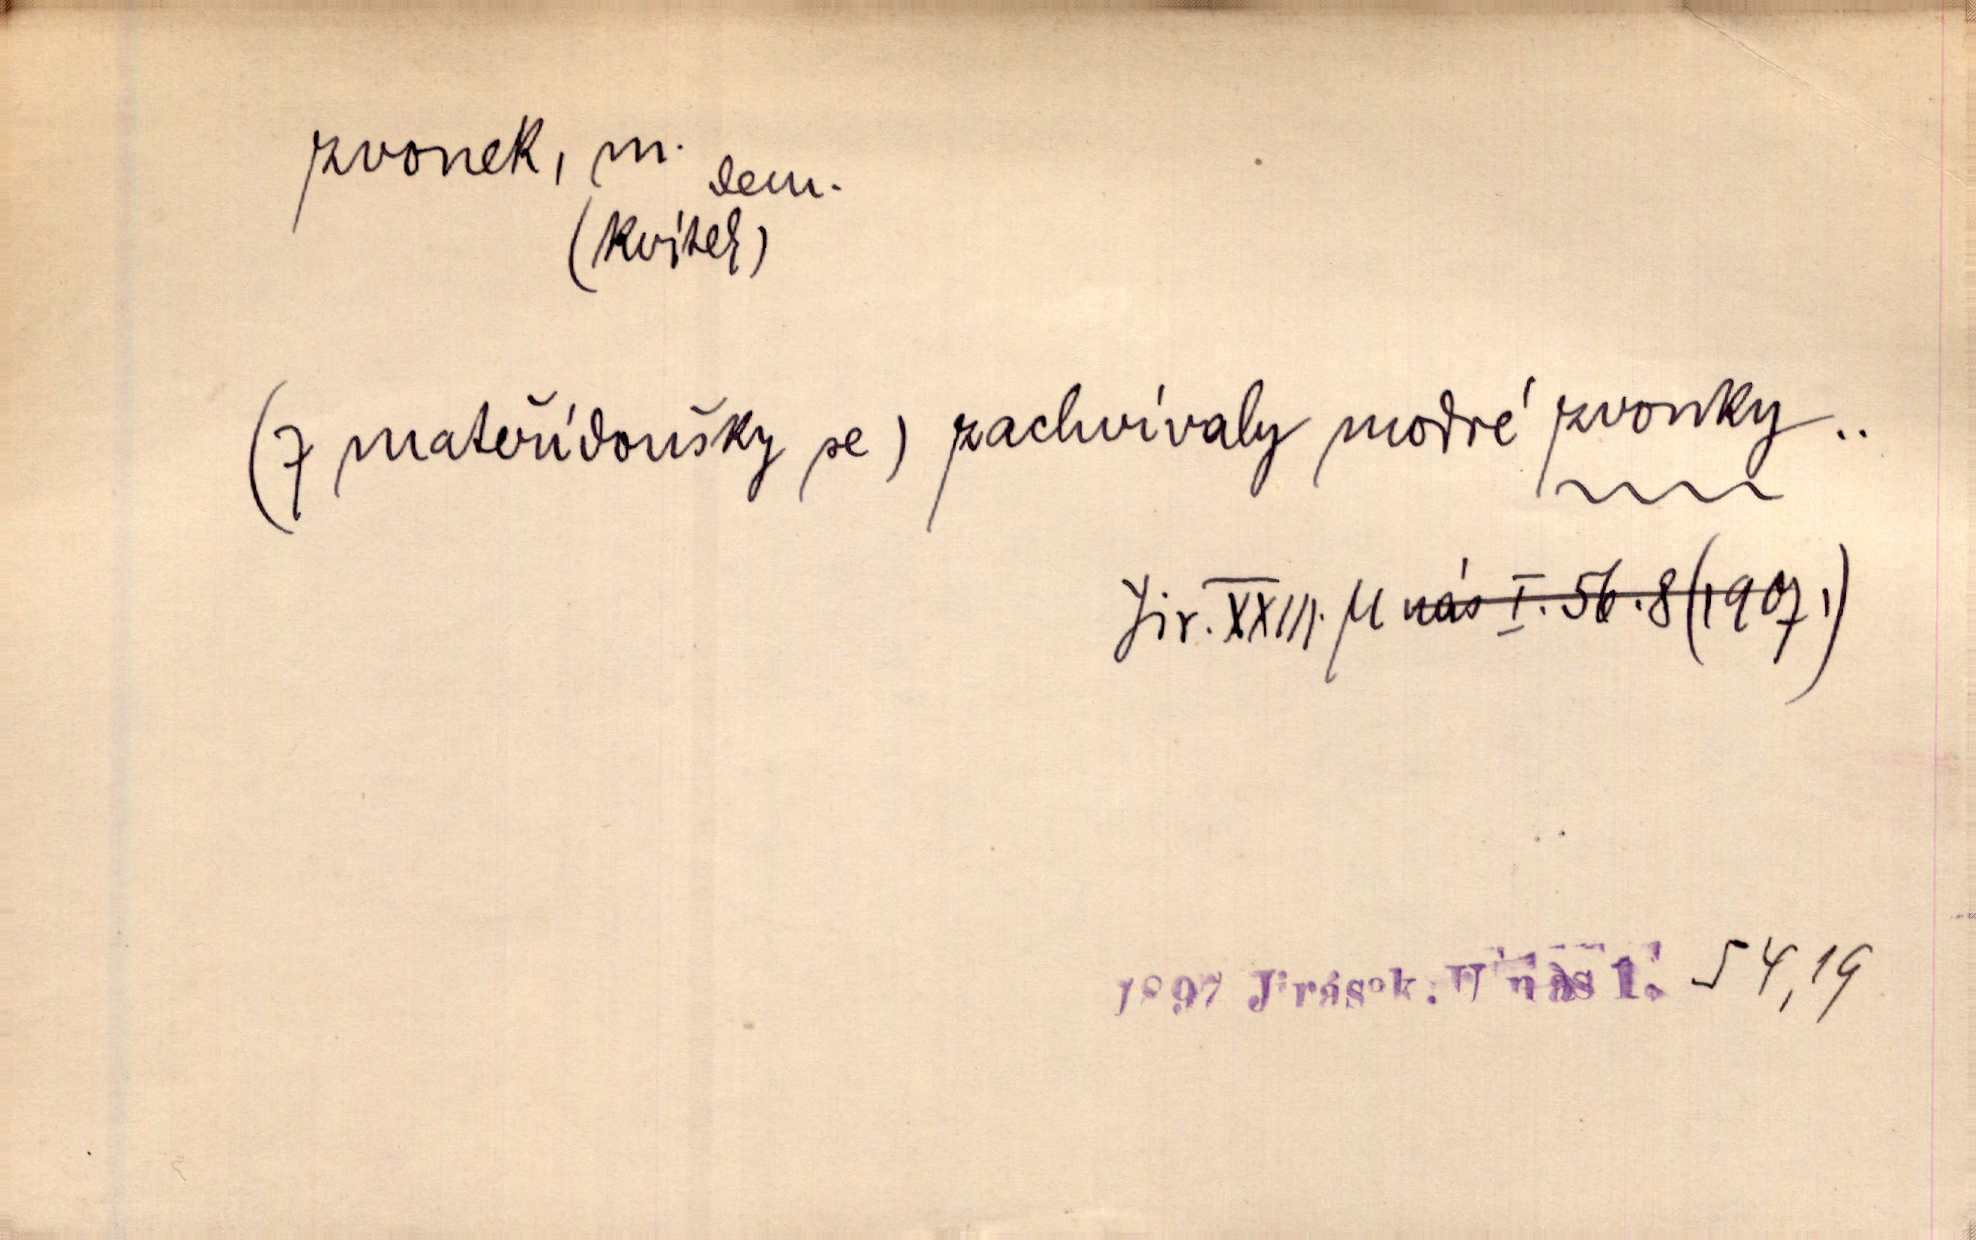 zvonek, m.
dem.
(kvítek)
(z mateřídoušky se) zachvívaly modré zvonky..
Jir. XXIII. U nás I. 56.8 (1907)
1897 Jirásek. U nás I. 54,19